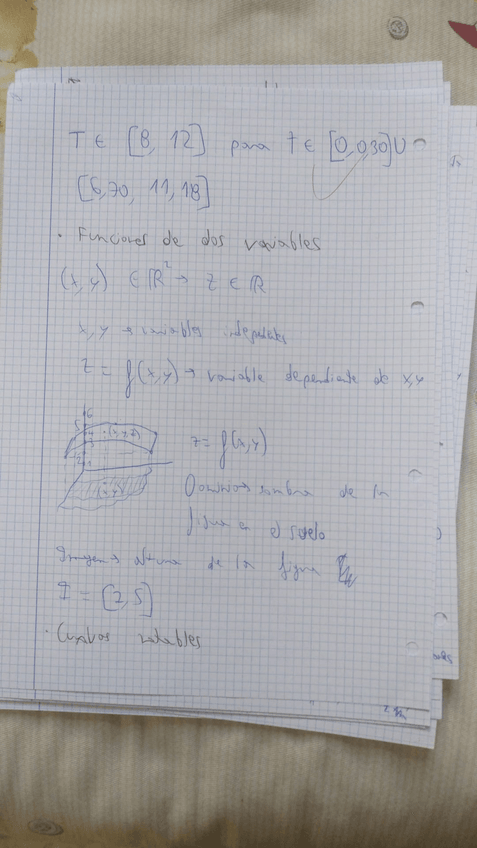 T ∈ [8, 12] para t ∈ [0, 0,30] ∪
[6,70, 11,18]
· Funciones de dos variables
(x, y) ∈ ℝ² → z ∈ ℝ
x, y → variables
z = f(x,y) → variable dependiente de x,y
z = f(x,y)
sombra de la
figura en el suelo
Imagen → altura de la figura
I = [2, 5]
· Curvas notables